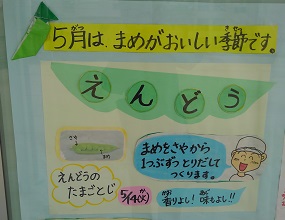 5月は、まめがおいしい季節です。
えんどう
さや
まめ
まめをさやから
1つぶずつとりだして
つくります。
えんどうの
たまごとじ
5/14(火)
香りよし！味もよし!!